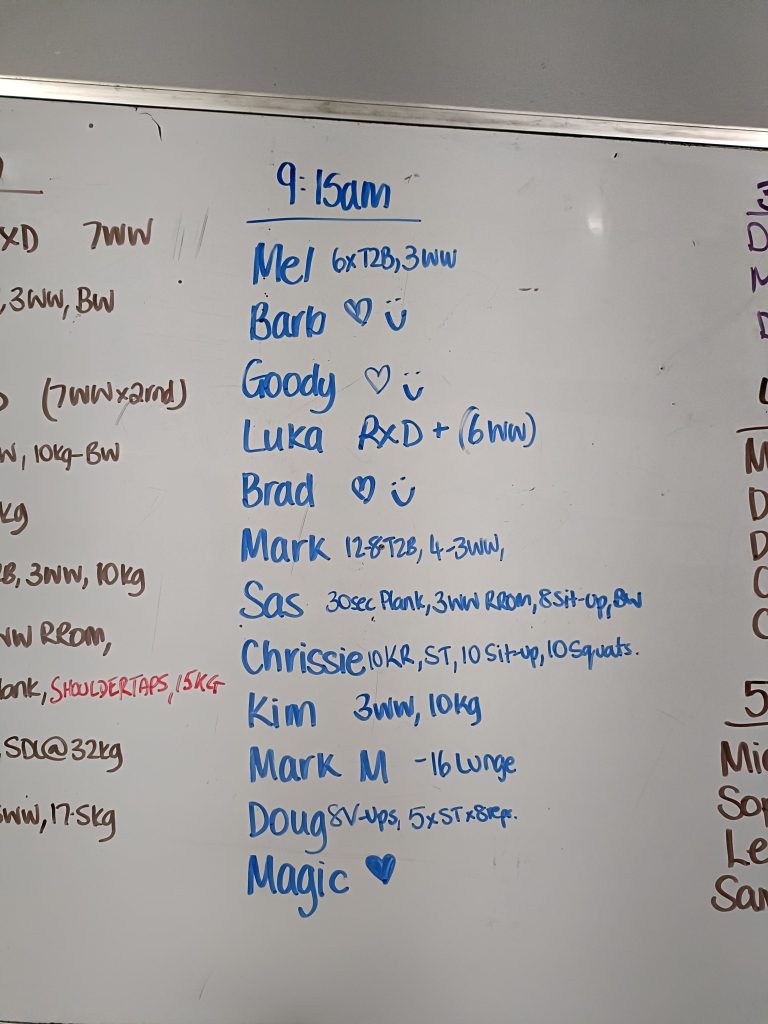 RXD 7WW
, 3WW, BW
(7WWx2rnd)
W, 10kg-BW
kg
2B, 3WW, 10kg
WW RROM,
lank, SHOULDERTAPS, 15KG
, SDL@32kg
WW, 17.5kg
9:15am
Mel 6xT2B, 3WW
Barb ♡ ü
Goody ♡ ü
Luka RxD + (6WW)
Brad ♡ ü
Mark 12-8 T2B, 4-3WW,
Sas 30sec Plank, 3WW RROM, 8 Sit-up, BW
Chrissie 10KR, ST, 10 Sit-up, 10 Squats.
Kim 3WW, 10kg
Mark M -16 Lunge
Doug 8V-ups, 5xSTx8reps.
Magic ♥
3
D
M
D
M
D
D
C
C
5
Mic
Sop
Le
Sam